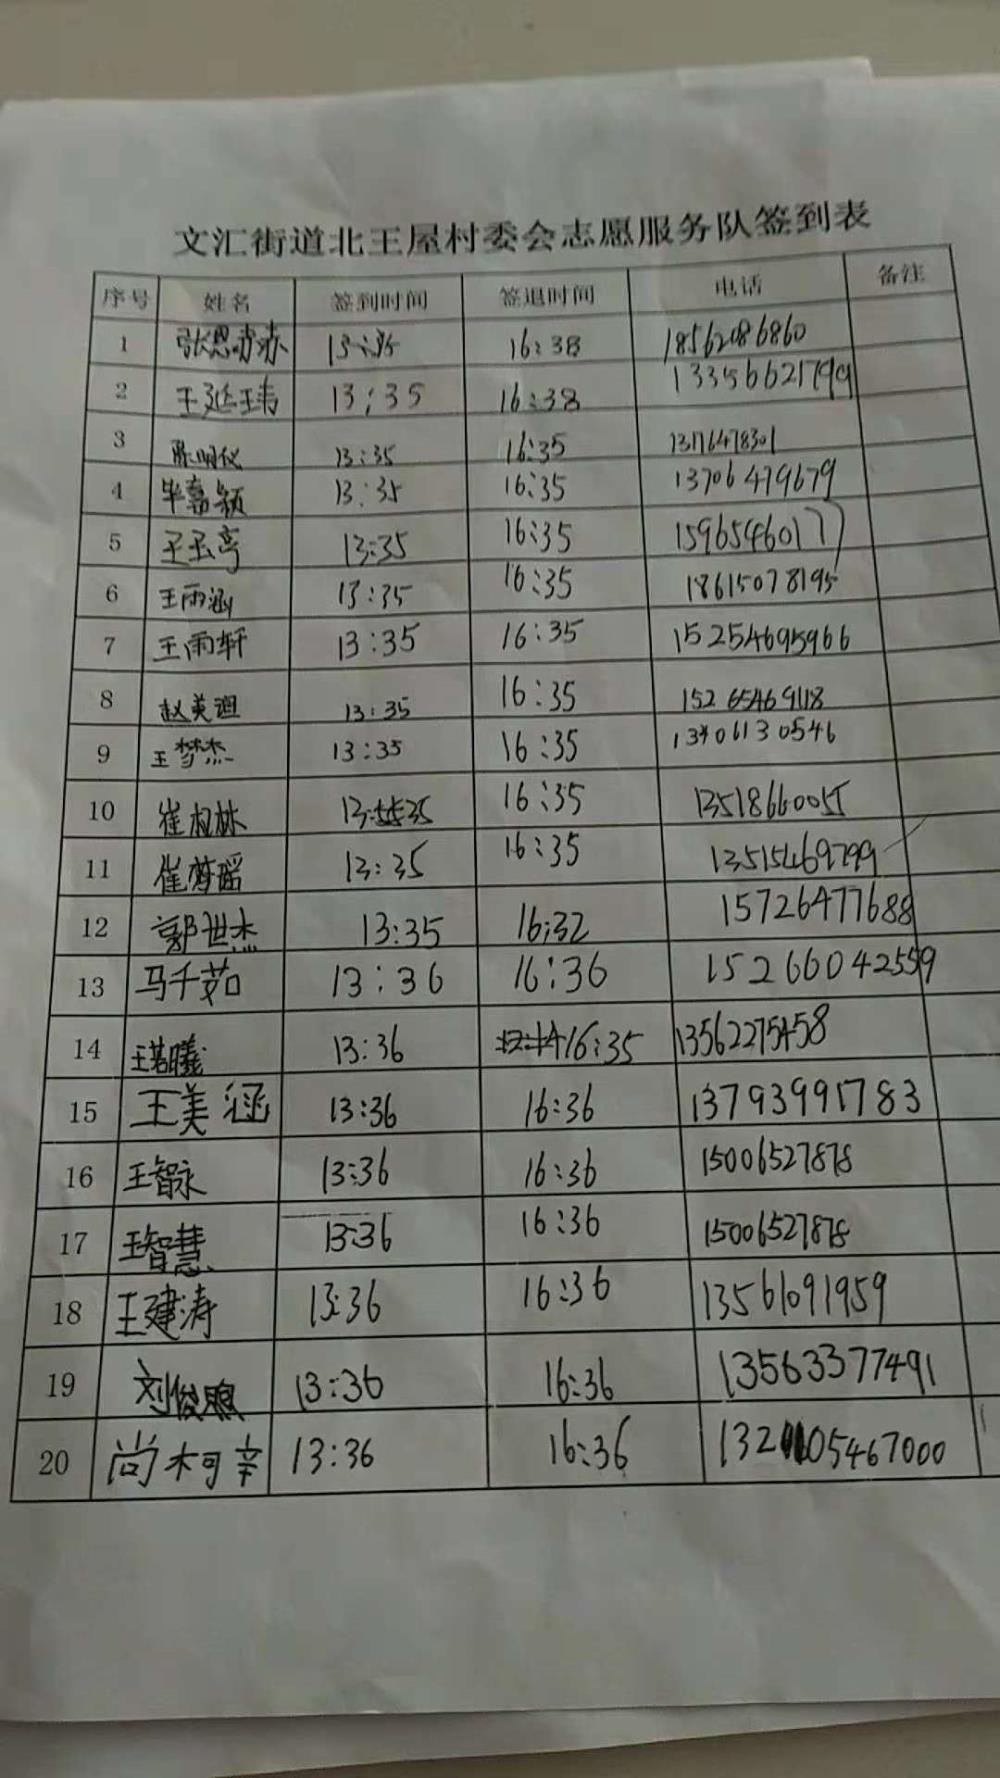 文汇街道北王屋村委会志愿服务队签到表
序号 姓名 签到时间 签退时间 电话 备注
1 16:38 18562086860
2 王延玮 13:35 16:38 13356621799
3 陈明仪 13:35 16:35 13176478301
4 毕嘉颖 13:35 16:35 13706479679
5 王玉亭 13:35 16:35 15965460177
6 王雨涵 13:35 16:35 18615078195
7 王雨轩 13:35 16:35 15254695966
8 赵美迪 13:35 16:35 15265469118
9 王梦杰 13:35 16:35
10 16:35 13518660055
11 崔梦瑶 13:35 16:35 13515469799
12 郭世杰 13:35 16:32 15726477688
13 马千茹 13:36 16:36 15266042559
14 王若曦 13:36 16:35 13562275458
15 王美涵 13:36 16:36 13793991783
16 王智永 13:36 16:36 15006527878
17 王智慧 13:36 16:36 15006527878
18 王建涛 13:36 16:36 13561091959
19 刘俊 13:36 16:36 13563377491
20 尚柯辛 13:36 16:36